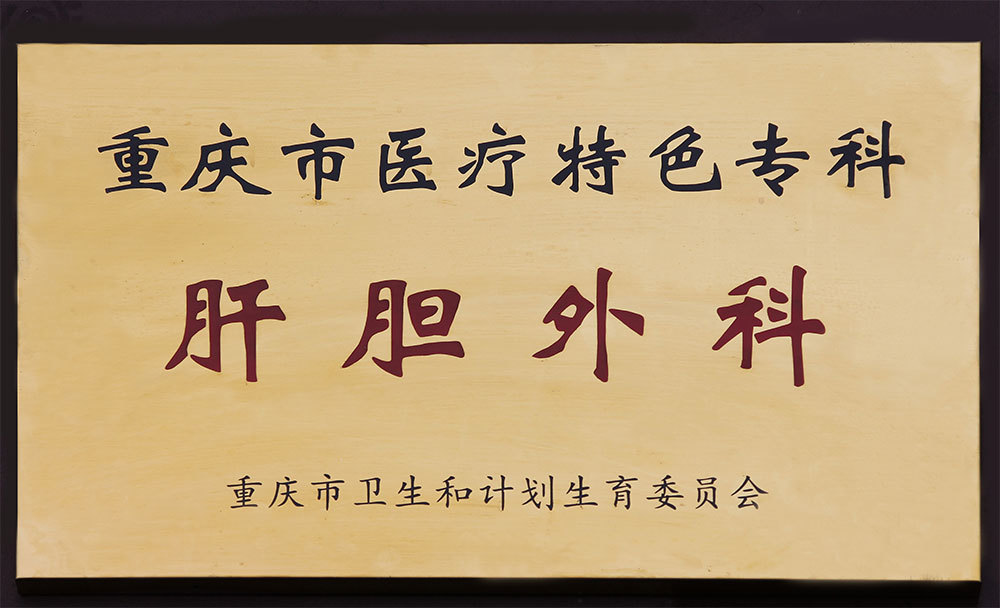 重庆市医疗特色专科
肝胆外科
重庆市卫生和计划生育委员会